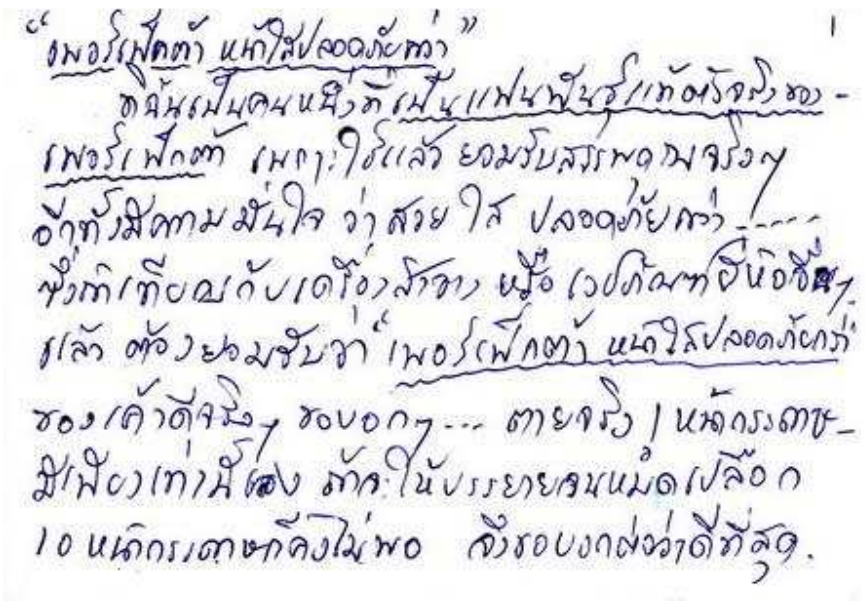 “เพอร์เฟ็คต้า หน้าใสปลอดภัยกว่า” 1
ดิฉันเป็นคนหนึ่งที่เป็นแฟนพันธุ์แท้ตัวจริงของ-
เพอร์เฟ็กต้า เพราะใช้แล้ว ยอมรับสรรพคุณจริงๆ
อีกทั้งมีความมั่นใจ ว่าสวย ใส ปลอดภัยกว่า.....
ซึ่งถ้าเทียบกับเครื่องสำอาง หรือ เวชภัณฑ์ยี่ห้ออื่นๆ
แล้ว ต้องยอมรับว่า“เพอร์เฟ็กต้า หน้าใสปลอดภัยกว่า
ของเค้าดีจริงๆ ขอบอกๆ... ตายจริง! หน้ากระดาษ-
มีเพียงเท่านี้เอง ถ้าจะให้บรรยายจนหมดเปลือก
10 หน้ากระดาษก็คงไม่พอ จึงขอบอกต่อว่าดีที่สุด.